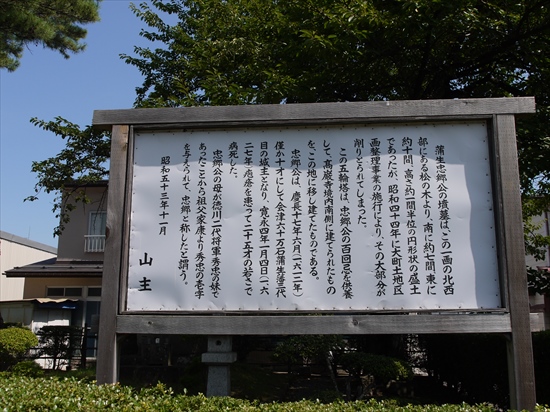 蒲生忠郷公の墳墓は、この一画の北西
部にある松の木より、南に約七間、東に
約十間、高さ約一間半位の円形状の盛土
であったが、昭和四十四年に大町土地区
画整理事業の施行により、その大部分が
削りとられてしまった。
この五輪塔は、忠郷公の百回忌を供養
して、高巖寺境内南側に建てられたもの
を、この地に移し建てたものである。
忠郷公は、慶長十七年六月(一六一二年)
僅か十才にして会津六十万石蒲生第三代
目の城主となり、寛永四年一月四日(一六
二七年)疱瘡を患って二十五才の若さで
病死した。
忠郷公の母が徳川二代将軍秀忠の妹で
あったことから祖父家康より秀忠の忠字
を与えられて、忠郷と称したと謂う。
昭和五十三年十一月
山主